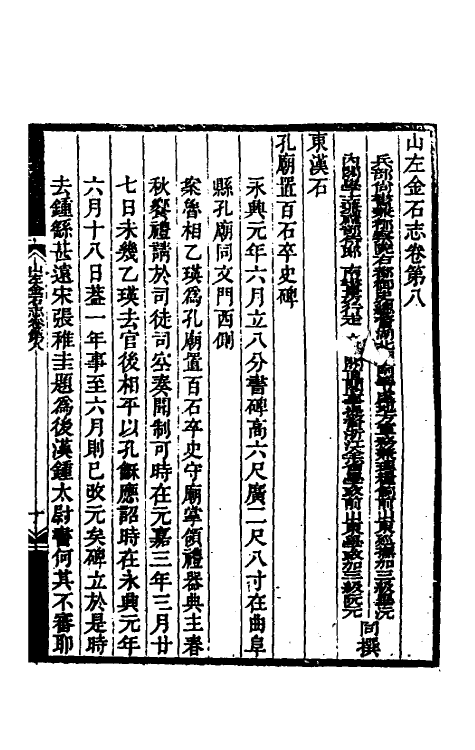 山左金石志卷第八
兵部尚書兼都察院右都御史總督湖北湖南等處地方軍務兼理糧餉前山東巡撫加三級畢沅
內閣學士兼禮部侍郎 南書房行走 文淵閣直閣事提督浙江全省學政前山東學政加三級阮元
同撰
東漢石
孔廟置百石卒史碑
永興元年六月立八分書碑高六尺廣二尺八寸在曲阜
縣孔廟同文門西側
案魯相乙瑛爲孔廟置百石卒史守廟掌領禮器典主春
秋饗禮請於司徒司空奏聞制可時在元嘉三年三月廿
七日未幾乙瑛去官後相平以孔龢應詔時在永興元年
六月十八日蓋一年事至六月則已改元矣碑立於是時
去鍾繇甚遠宋張稚圭題爲後漢鍾太尉書何其不審耶
山左金石志卷第八